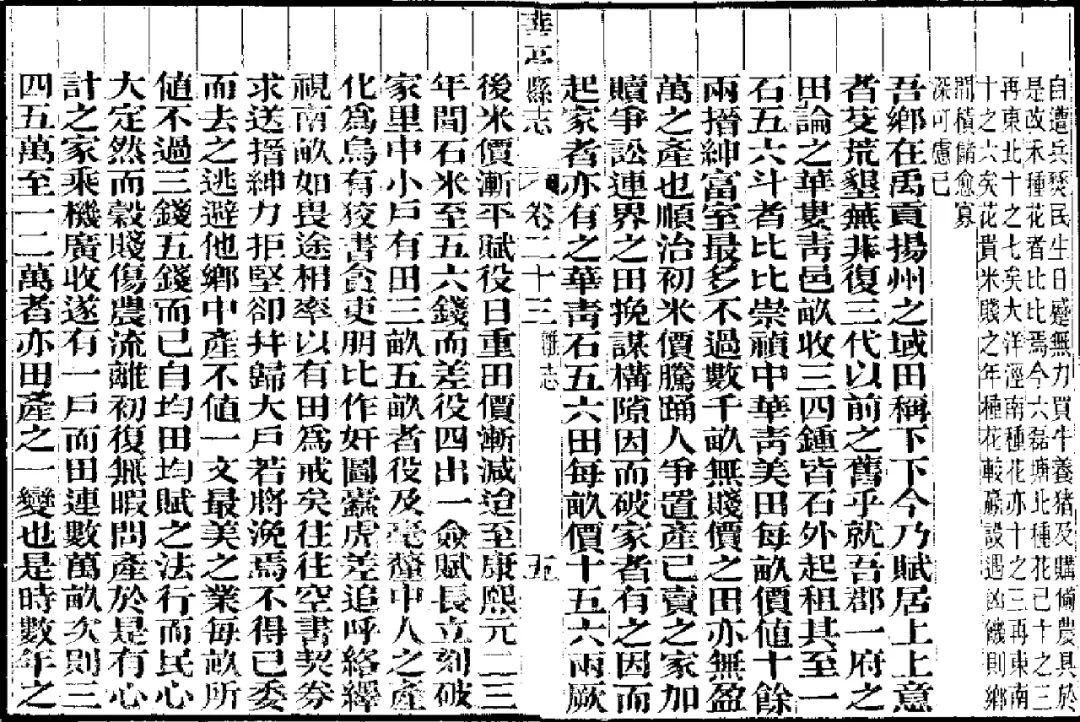 自遭兵燹民生日蹙無力買牛養猪及購備農具於
是改禾種花者比比焉今六磊塘北種花已十之三
再東北十之七矣大洋涇南種花亦十之三再東南
十之六矣花貴米賤之年種花較豪設遇凶饑則鄉
間積儲愈寡
深可慮已
吾鄉在禹貢揚州之域田稱下下今乃賦居上上意
者芟荒墾蕪非復三代以前之舊乎就吾郡一府之
田論之華婁靑邑畝收三四鍾皆石外起租其至一
石五六斗者比比崇禎中華靑美田每畝價値十餘
兩搢紳富室最多不過數千畝無賤價之田亦無盈
萬之產也順治初米價騰踊人爭置產已賣之家加
贖爭訟連界之田挽謀構隙因而破家者有之因而
起家者亦有之華靑石五六田每畝價十五六兩厥
華亭縣志 卷二十三 雜志 五
後米價漸平賦役日重田價漸減迨至康熙元二三
年間石米至五六錢而差役四出一僉賦長立刻破
家里中小戸有田三畝五畝者役及毫釐中人之產
化爲烏有狡書貪吏朋比作奸圖蠹虎差追呼絡繹
視南畝如畏途相率以有田爲戒矣往往空書契券
求送搢紳力拒堅卻幷歸大戸若將浼焉不得已委
而去之逃避他鄉中產不値一文最美之業每畝所
値不過三錢五錢而已自均田均賦之法行而民心
大定然而穀賤傷農流離初復無暇問產於是有心
計之家乘機廣收遂有一戸而田連數萬畝次則三
四五萬至一二萬者亦田產之一變也是時數年之